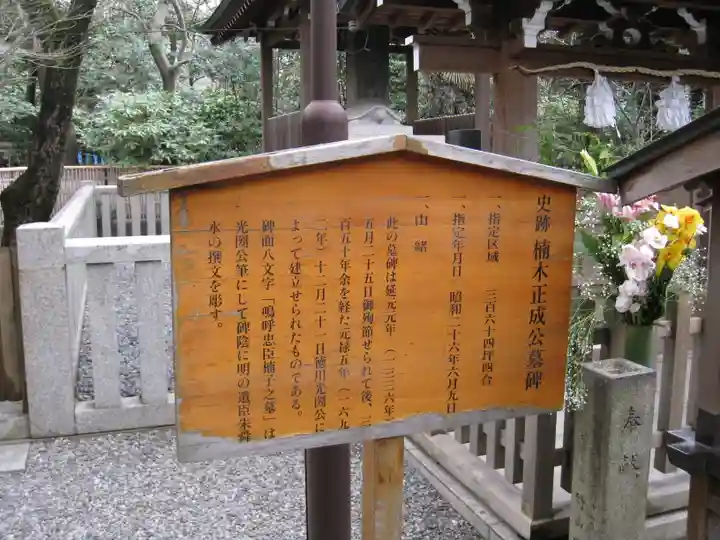 史跡 楠木正成公墓碑
一、指定区域 三百六十四坪四合
一、指定年月日 昭和二十六年六月九日
一、由緒
此の墓碑は延元元年(一三三六年
五月二十五日御殉節せられて後、三
百五十年余を経た元禄五年(一六九
二年)十二月二十一日徳川光圀公に
よって建立せられたものである。
碑面八文字「嗚呼忠臣楠子之墓」は
光圀公筆にして碑陰に明の遺臣朱舜
水の撰文を彫す。
奉